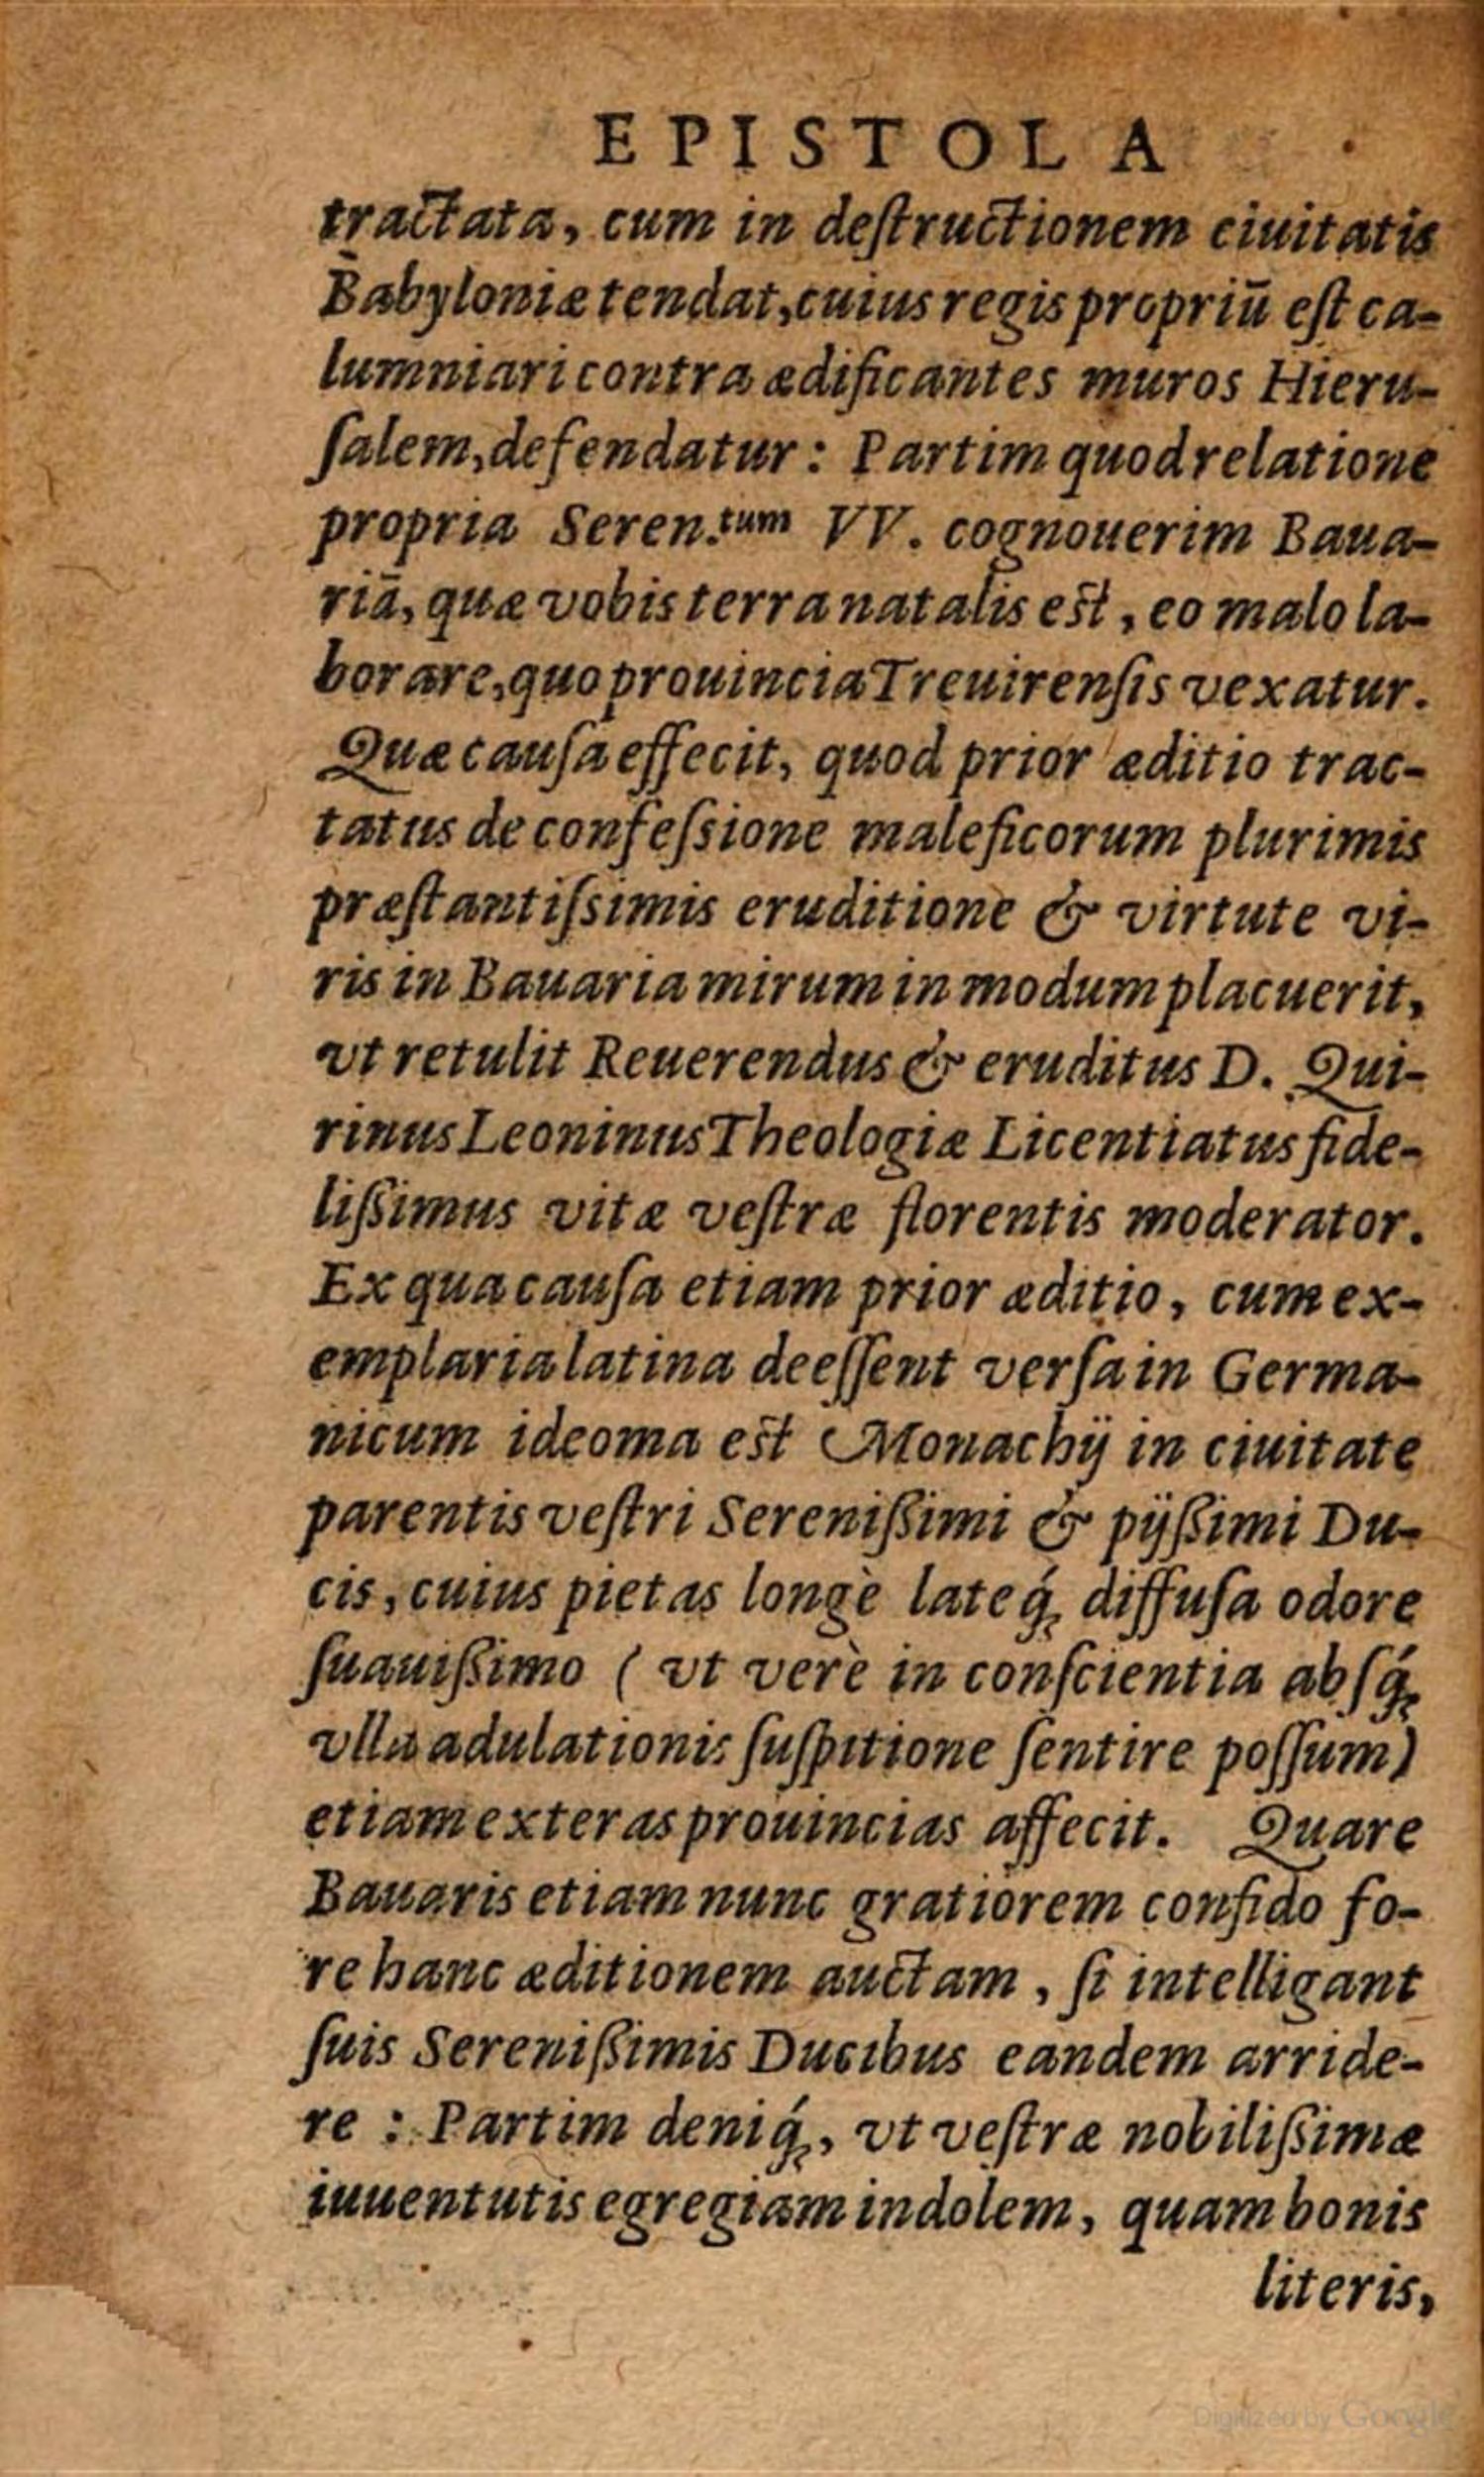 EPISTOLA
tractata, cum in deſtructionem ciuitatis
Babyloniæ tendat, cuius regis propriū eſt ca-
lumniari contra ædificantes muros Hieru-
ſalem, defendatur: Partim quod relatione
propria Seren.tum VV. cognouerim Baua-
riā, quæ vobis terra natalis eſt, eo malo la-
borare, quo prouincia Treuirenſis vexatur.
Quæ cauſa effecit, quod prior æditio trac-
tatus de confeſsione maleficorum plurimis
præſtantiſsimis eruditione & virtute vi-
ris in Bauaria mirum in modum placuerit,
vt retulit Reuerendus & eruditus D. Qui-
rinus Leoninus Theologiæ Licentiatus fide-
lißimus vitæ veſtræ florentis moderator.
Ex qua cauſa etiam prior æditio, cum ex-
emplaria latina deeſſent verſa in Germa-
nicum ideoma eſt Monachij in ciuitate
parentis veſtri Serenißimi & pijßimi Du-
cis, cuius pietas longè lateq́; diffuſa odore
ſuauißimo (vt verè in conſcientia abſq́;
vlla adulationis ſuſpitione ſentire poſſum)
etiam exteras prouincias affecit. Quare
Bauaris etiam nunc gratiorem confido fo-
re hanc æditionem auctam, ſi intelligant
ſuis Serenißimis Ducibus eandem arride-
re: Partim deniq́;, vt veſtræ nobilißimæ
iuuentutis egregiam indolem, quam bonis
literis,
Digitized by Google